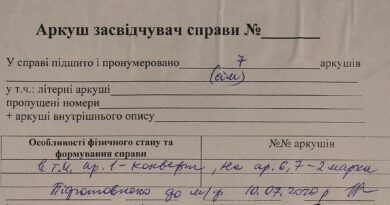 Аркуш засвідчувач справи №
У справі підшито і пронумеровано 7 аркушів
(сім)
у т.ч.: літерні аркуші
пропущені номери
+ аркуші внутрішнього опису
Особливості фізичного стану та формування справи №№ аркушів
в т.ч. ар.1-конверт, на ар.6,7-2 марки
Підготовлено до м/ф 10.07.2020р